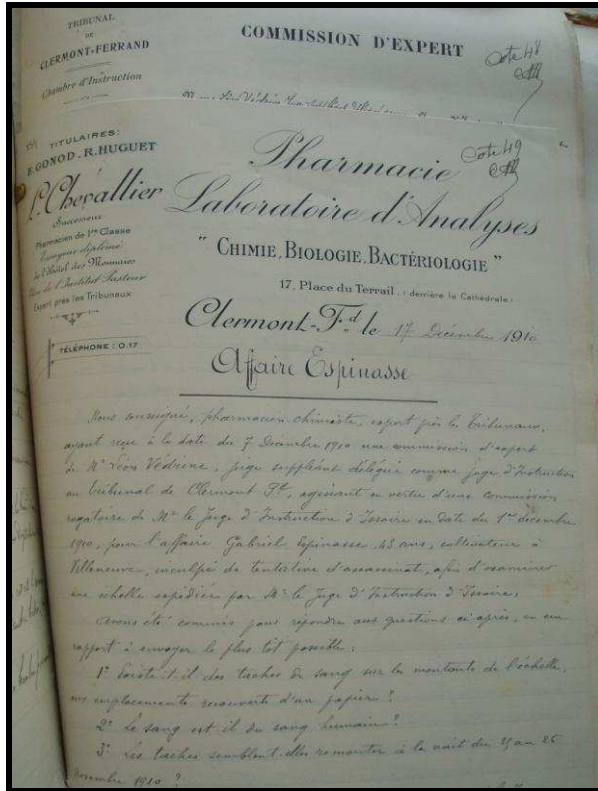 TRIBUNAL
DE
CLERMONT-FERRAND
Chambre d'Instruction
COMMISSION D'EXPERT
Cote 48
TITULAIRES:
E. GONOD - R. HUGUET
L. Chevallier
Successeur
Pharmacien de 1re Classe
Essayeur diplômé
de l'Hôtel des Monnaies
de l'Institut Pasteur
Expert près les Tribunaux
TÉLÉPHONE : 0.17
Cote 49
Pharmacie
Laboratoire d'Analyses
" CHIMIE, BIOLOGIE, BACTÉRIOLOGIE "
17, Place du Terrail, (derrière la Cathédrale)
Clermont-Fd le 17 Décembre 1910
Affaire Espinasse
Nous soussigné, pharmacien-chimiste, expert près les Tribunaux,
ayant reçu à la date du 7 Décembre 1910 une commission d'expert
de Mr Léon Védrine, juge suppléant délégué comme juge d'Instruction
au tribunal de Clermont Fd, agissant en vertu d'une commission
rogatoire de Mr le Juge d'Instruction d'Issoire en date du 1er décembre
1910, pour l'affaire Gabriel Espinasse, 43 ans, cultivateur à
Villeneuve, inculpé de tentative d'assassinat, afin d'examiner
une échelle expédiée par Mr le Juge d'Instruction d'Issoire,
avons été commis pour répondre aux questions ci après, en un
rapport à envoyer le plus tôt possible :
1° Existe-t-il des taches de sang sur les montants de l'échelle,
aux emplacements recouverts d'un papier ?
2° Le sang est-il du sang humain ?
3° Les taches semblent-elles remonter à la nuit du 25 au 26
Novembre 1910 ?